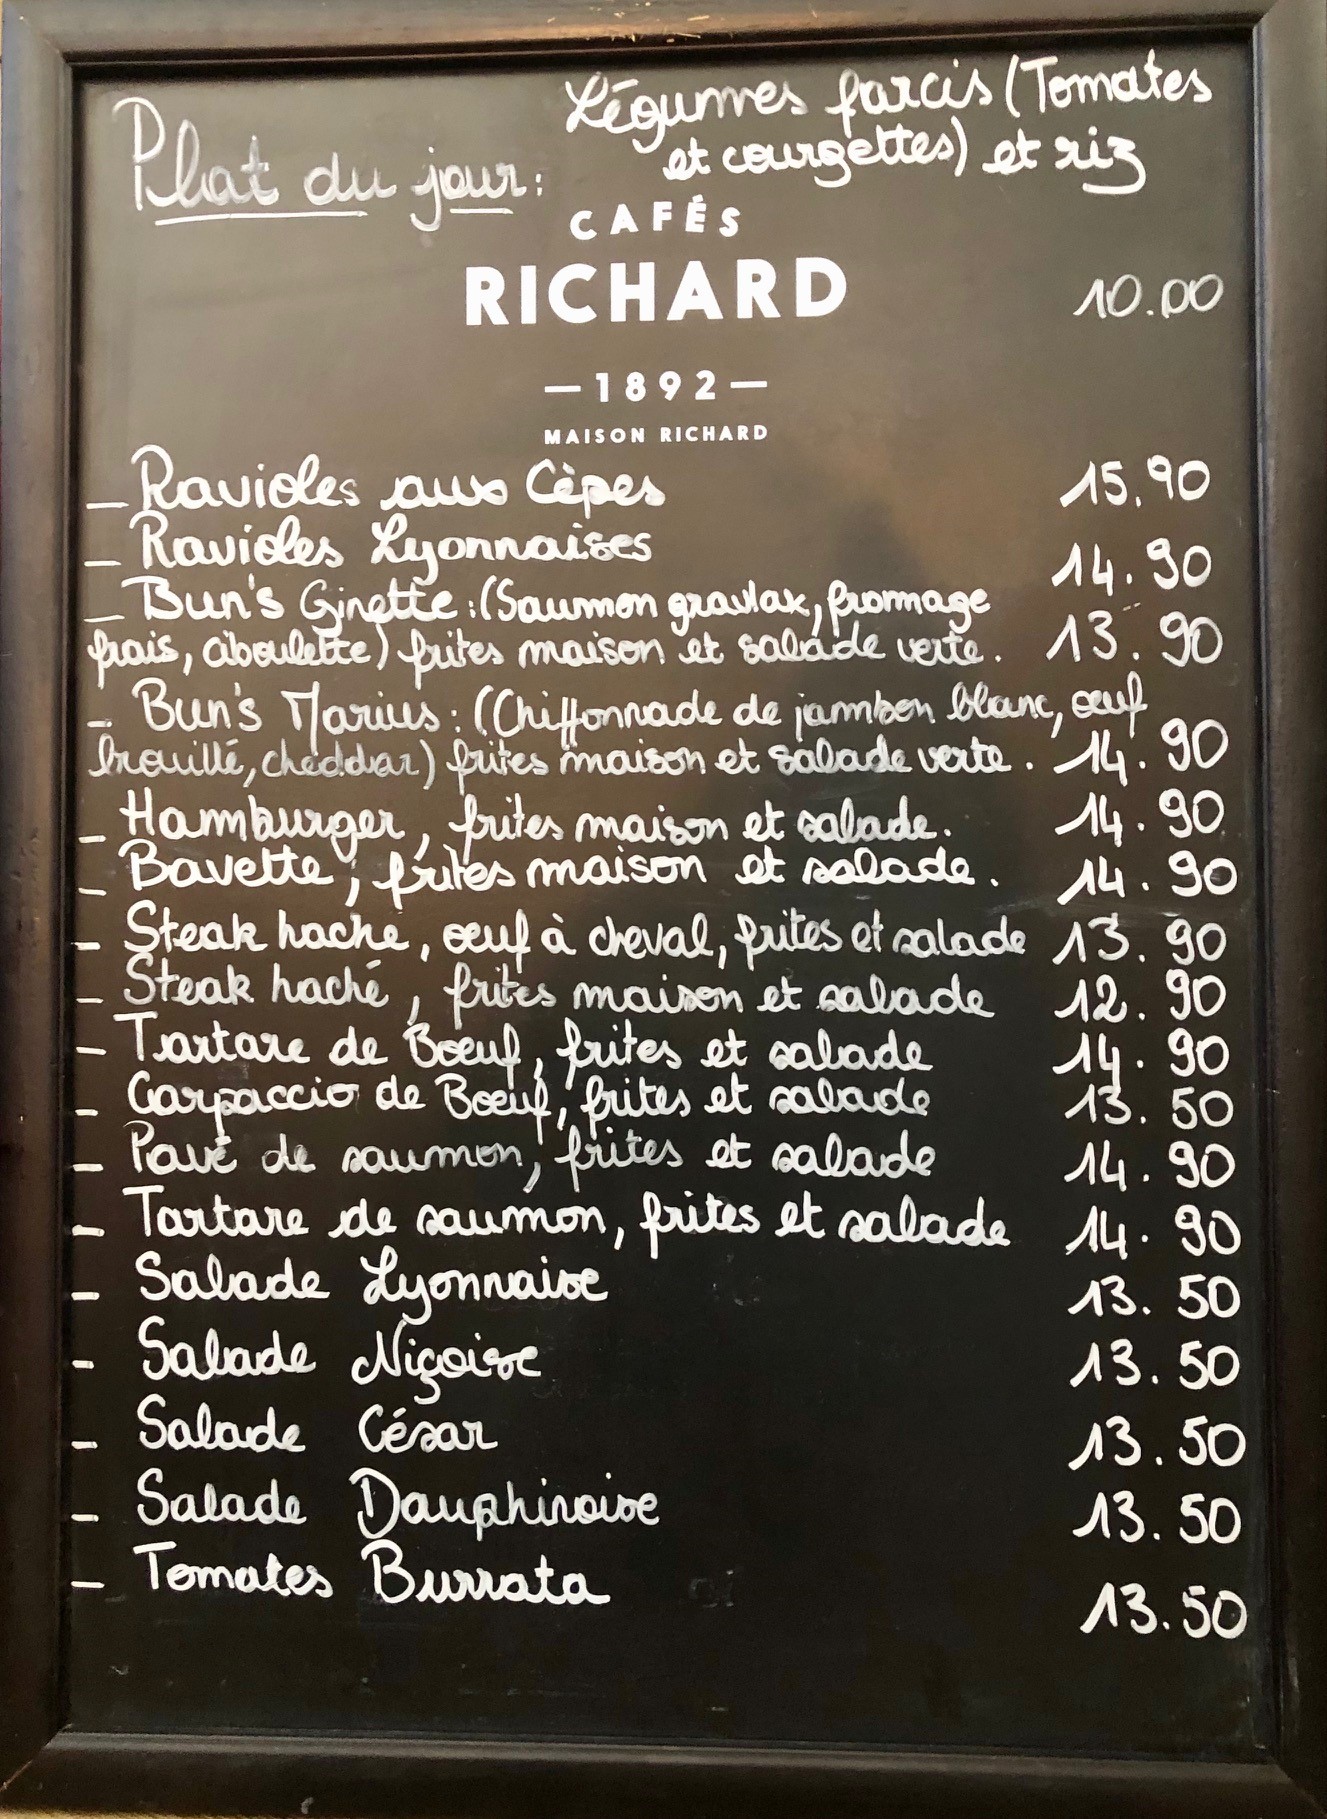 Plat du jour: Légumes farcis (Tomates
et courgettes) et riz
CAFÉS
RICHARD
10.00
—1892—
MAISON RICHARD
_ Ravioles aux Cèpes 15.90
_ Ravioles Lyonnaises 14.90
_ Bun's Ginette :(Saumon gravlax, fromage
frais, ciboulette) frites maison et salade verte. 13.90
- Bun's Marius : (Chiffonnade de jambon blanc, œuf
brouillé, cheddar) frites maison et salade verte. 14.90
- Hamburger, frites maison et salade. 14.90
- Bavette, frites maison et salade. 14.90
- Steak haché, œuf à cheval, frites et salade 13.90
- Steak haché, frites maison et salade 12.90
- Tartare de Bœuf, frites et salade 14.90
- Carpaccio de Bœuf, frites et salade 13.50
- Pavé de saumon, frites et salade 14.90
- Tartare de saumon, frites et salade 14.90
- Salade Lyonnaise 13.50
- Salade Niçoise 13.50
- Salade César 13.50
- Salade Dauphinoise 13.50
- Tomates Burrata 13.50